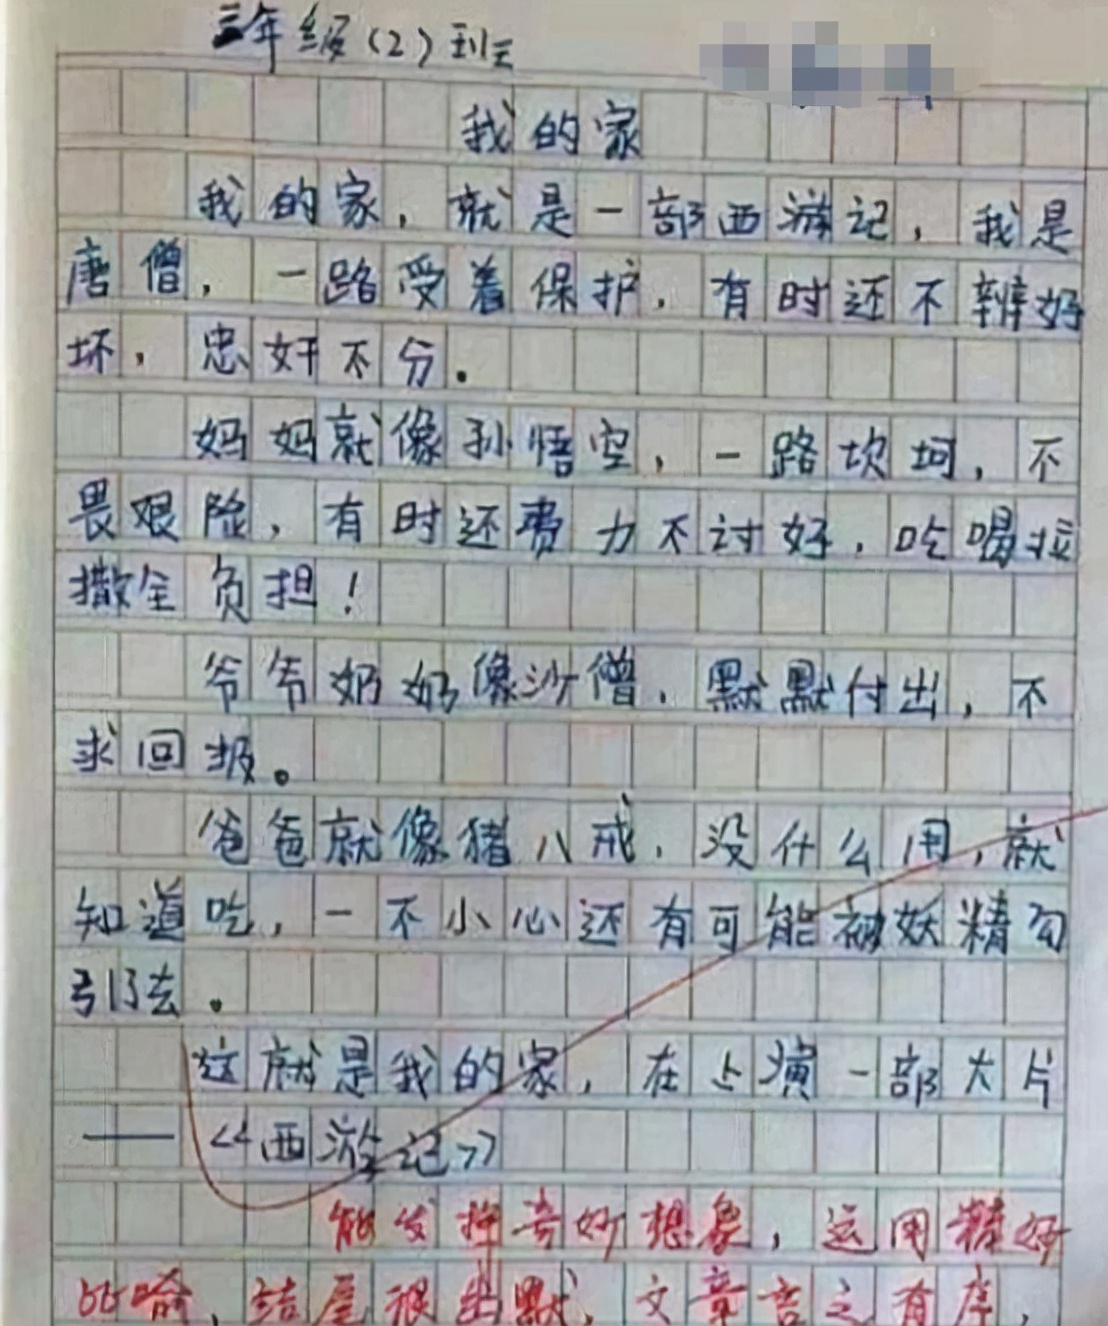 三年级(2)班
我的家
我的家，就是一部西游记，我是
唐僧，一路受着保护，有时还不辨好
坏，忠奸不分。
妈妈就像孙悟空，一路坎坷，不
畏艰险，有时还费力不讨好，吃喝拉
撒全负担！
爷爷奶奶像沙僧，默默付出，不
求回报。
爸爸就像猪八戒，没什么用，就
知道吃，一不小心还有可能被妖精勾
引去。
这就是我的家，在上演一部大片
——《西游记》
能发挥奇妙想象，运用精好
比喻，结尾很幽默，文章言之有序，